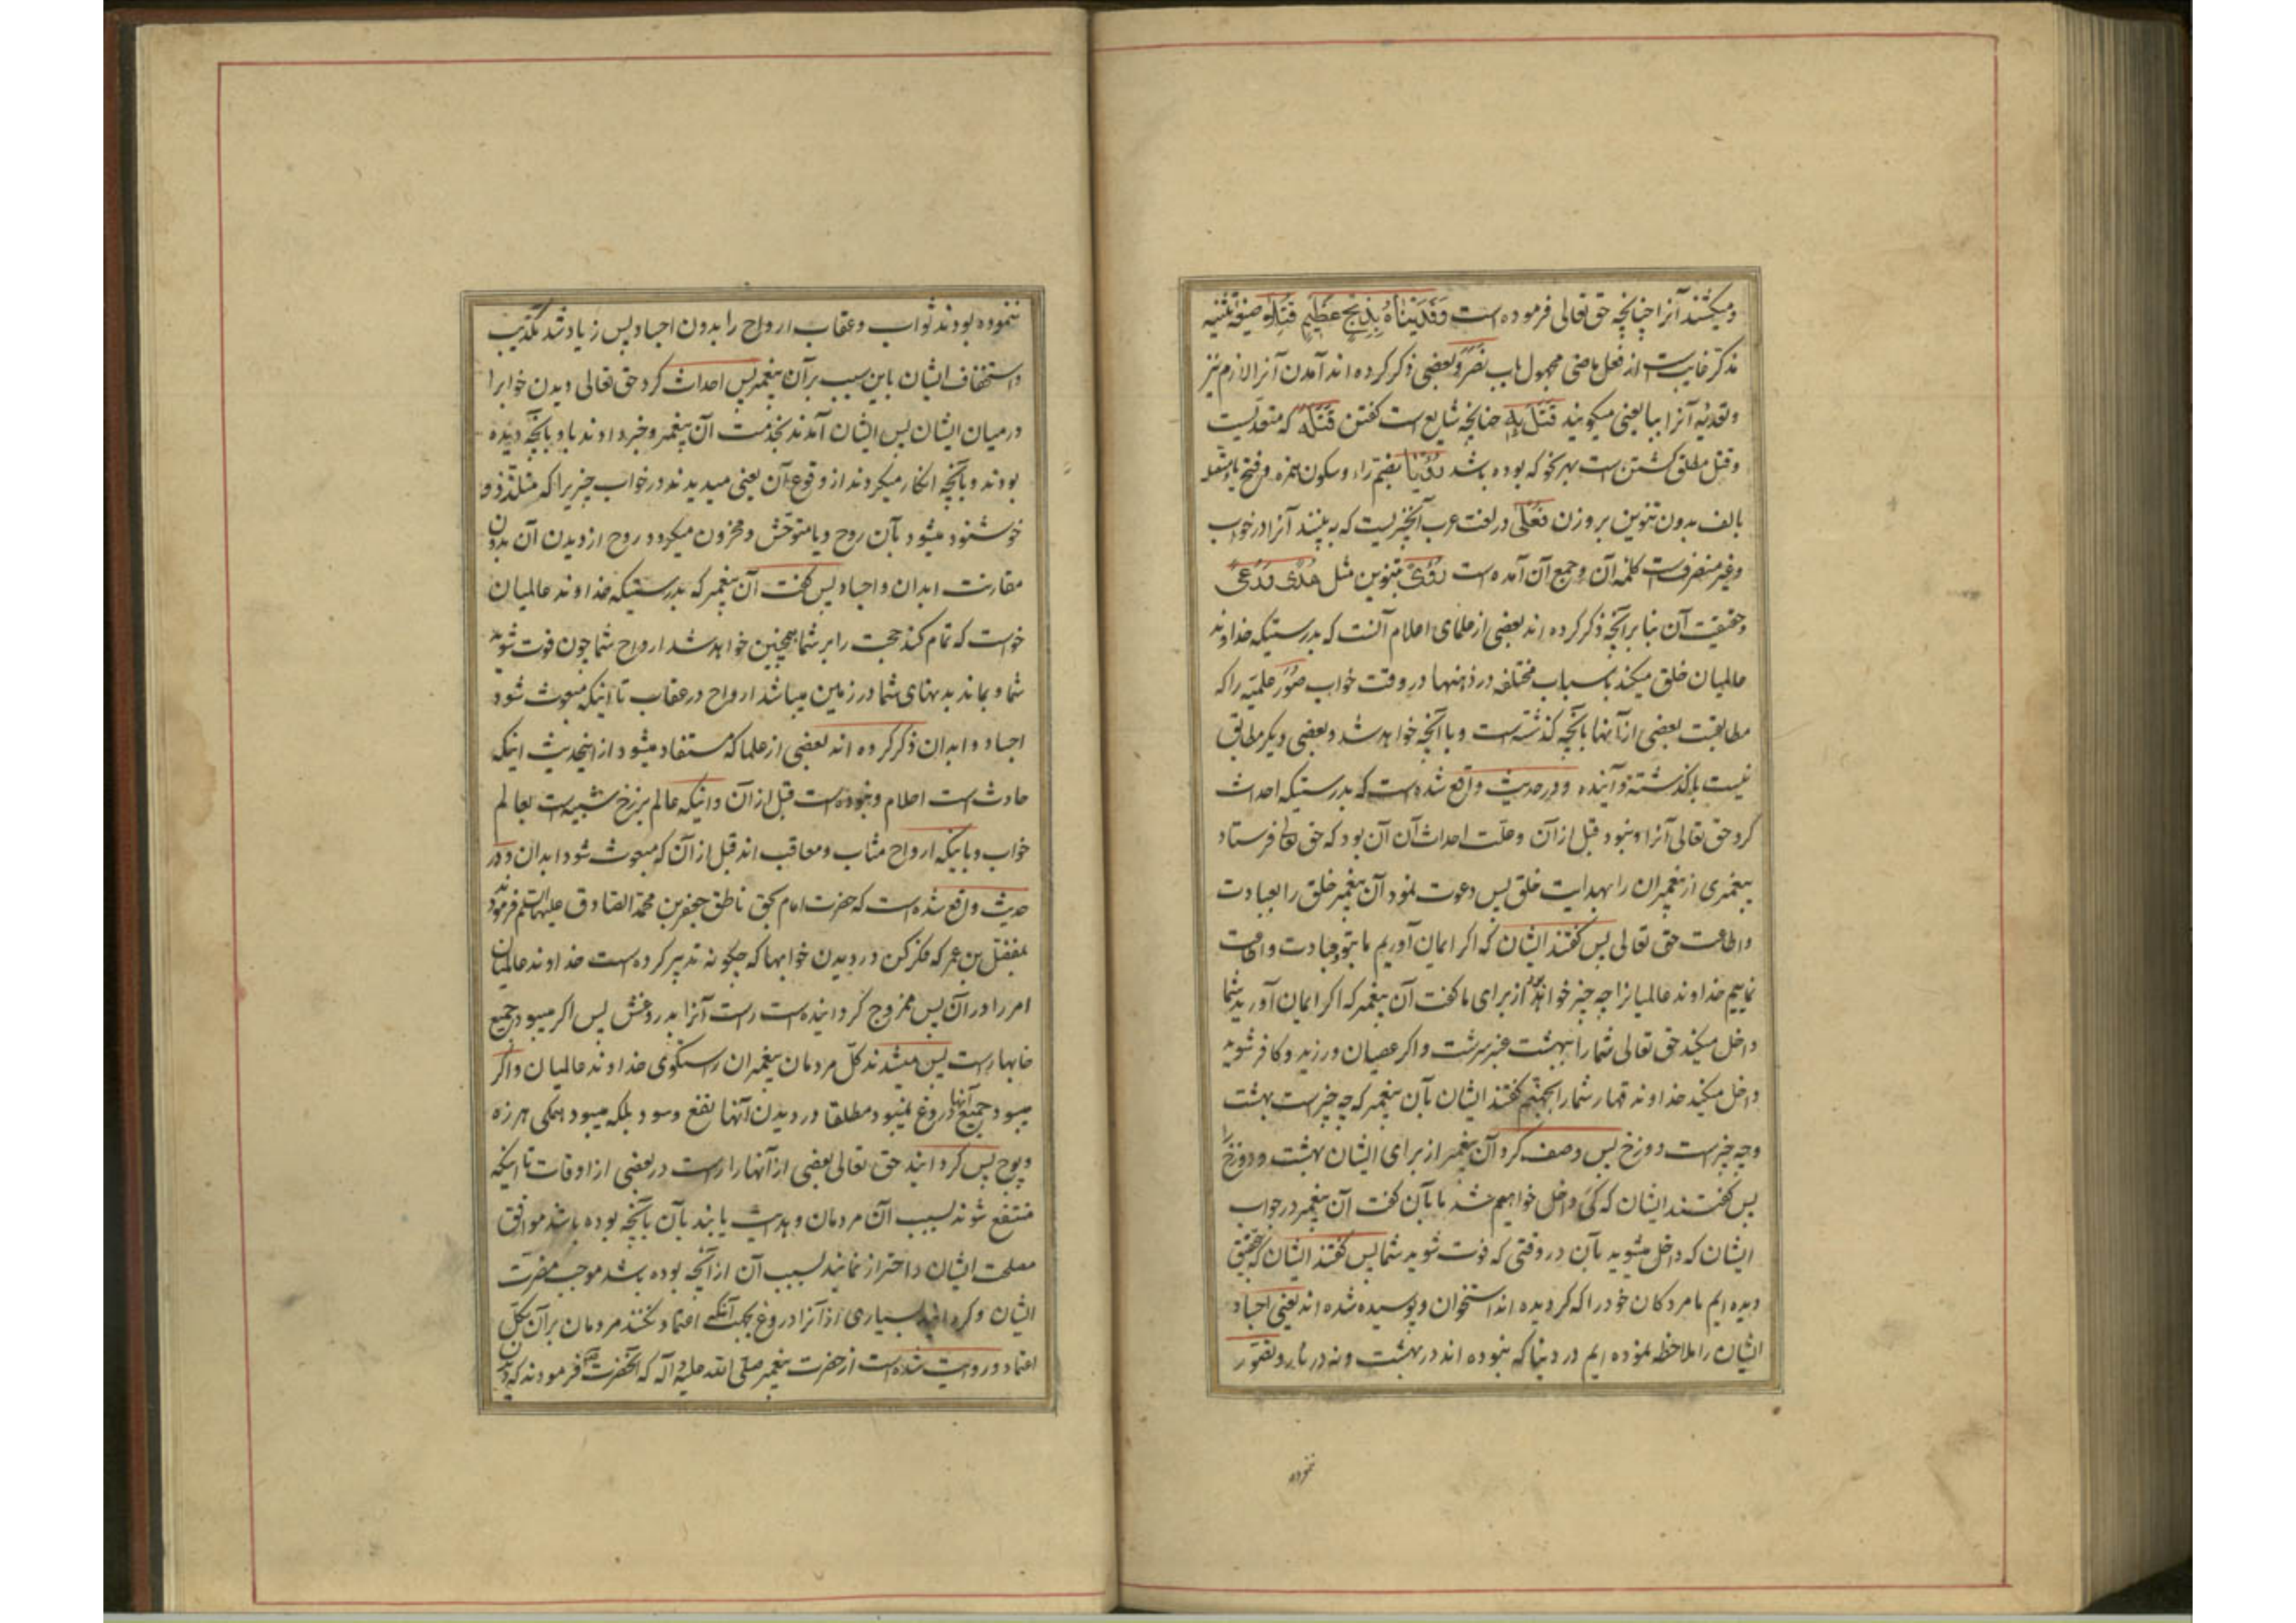 و میکشند آنرا چنانچه حق تعالی فرموده است وَفَدَیْنَاهُ بِذِبْحٍ عَظِیمٍ قُتِلَا صیغه تثنیه
مذکر غایب است از فعل ماضی مجهول باب نَصَرَ و بعضی ذکر کرده اند آمدن آنرا لازم نیز
و تعدیه آنرا ببا یعنی میکویند قَتَلَ بِهِ چنانچه شایع است کفتن قَتَلَهُ که متعدیست
و قتل مطلق کشتن است بهر نحو که بوده باشد رُؤْیَا بضم راء و سکون همزه و فتح یا
بالف بدون تنوین بر وزن فُعْلی در لغت عرب آنچیزیست که به بینند آنرا در خواب
و غیر منصرف است کلمه آن و جمع آن آمده است رُؤیً بتنوین مثل هُدًی
و حقیقت آن بنا بر آنچه ذکر کرده اند بعضی از علمای اعلام آنست که بدرستیکه خداوند
عالمیان خلق میکند باسباب مختلفه در ذهنها در وقت خواب صُوَر علمیه را که
مطابقت بعضی از آنها بآنچه کذشته است و با آنچه خواهد شد و بعضی دیکر مطابق
نیست با کذشته و آینده و در حدیث واقع شده است که بدرستیکه احداث
کرد حق تعالی آنرا و نبود قبل از آن و علت احداث آن آن بود که حق تعالی فرستاد
پیغمبری از پیغمبران را بهدایت خلق پس دعوت نمود آن پیغمبر خلق را بعبادت
و اطاعت حق تعالی پس کفتند ایشان که اکر ایمان آوریم ما بتو و عبادت و اطاعت
نماییم خداوند عالمیانرا چه چیز خواهد بود از برای ما کفت آن پیغمبر که اکر ایمان آورید شما
داخل میکند حق تعالی شما را ببهشت عنبر سرشت و اکر عصیان ورزید و کافر شوید
داخل میکند خداوند قهار شما را بجهنم کفتند ایشان بآن پیغمبر که چه چیز است بهشت
و چه چیز است دوزخ پس وصف کرد آن پیغمبر از برای ایشان بهشت و دوزخ را
پس کفتند ایشان که کَیْ داخل خواهیم شد ما بآن کفت آن پیغمبر در جواب
ایشان که داخل میشوید بآن در وقتی که فوت شوید شما پس کفتند ایشان که بتحقیق
دیده ایم ما مردکان خود را که کردیده اند استخوان و پوسیده شده اند یعنی اجساد
ایشان را ملاحظه نموده ایم در دنیا که نبوده اند در بهشت و نه در نار و تصوّر
ننموده
ننموده بودند ثواب و عقاب ارواح را بدون اجساد پس زیاد شد تکذیب
و استخفاف ایشان باین سبب بر آن پیغمبر پس احداث کرد حق تعالی دیدن خوابرا
در میان ایشان پس ایشان آمدند بخدمت آن پیغمبر و خبر دادند باو بآنچه دیده
بودند و بآنچه انکار میکردند از وقوع آن یعنی میدیدند در خواب چیزیرا که متلذذ و
خوشنود میشود بآن روح و یا متوحش و محزون میکردد روح از دیدن آن بدون
مقارنت ابدان و اجساد پس کفت آن پیغمبر که بدرستیکه خداوند عالمیان
خواست که تمام کند حجت را بر شما همچنین خواهد شد ارواح شما چون فوت شوید
شما و بماند بدنهای شما در زمین میباشد ارواح در عقاب تا اینکه مبعوث شود
اجساد و ابدان ذکر کرده اند بعضی از علما که مستفاد میشود از اینحدیث اینکه
حادث است احلام و نبوده است قبل از آن و اینکه عالم برزخ شبیه است بعالم
خواب و باینکه ارواح مثاب و معاقب اند قبل از آن که مبعوث شود ابدان و در
حدیث واقع شده است که حضرت امام بحق ناطق جعفر بن محمد الصادق علیهما السلم فرمودند
بمفضل بن عمر که فکر کن در دیدن خوابها که چکونه تدبیر کرده است خداوند عالمیان
امر را در آن پس ممزوج کردانیده است راست آنرا بدروغش پس اکر میبود جمیع
خابها راست پس میشدند کل مردمان پیغمبران راستکوی خداوند عالمیان و اکر
میبود جمیع آنها دروغ نمیبود مطلقا در دیدن آنها نفع و سود بلکه میبود همکی هرزه
و پوچ پس کردانید حق تعالی بعضی از آنها را راست در بعضی از اوقات تا اینکه
منتفع شوند بسبب آن مردمان و هدایت یابند بآن بآنچه بوده باشد موافق
مصلحت ایشان و احتراز نمایند بسبب آن از آنچه بوده باشد موجب مضرت
ایشان و کردانید بسیاری از آنرا دروغ بجهت آنکه اعتماد نکنند مردمان بر آن بکل
اعتماد و روایت شده است از حضرت پیغمبر صلی الله علیه و آله که آنحضرت فرمودند که